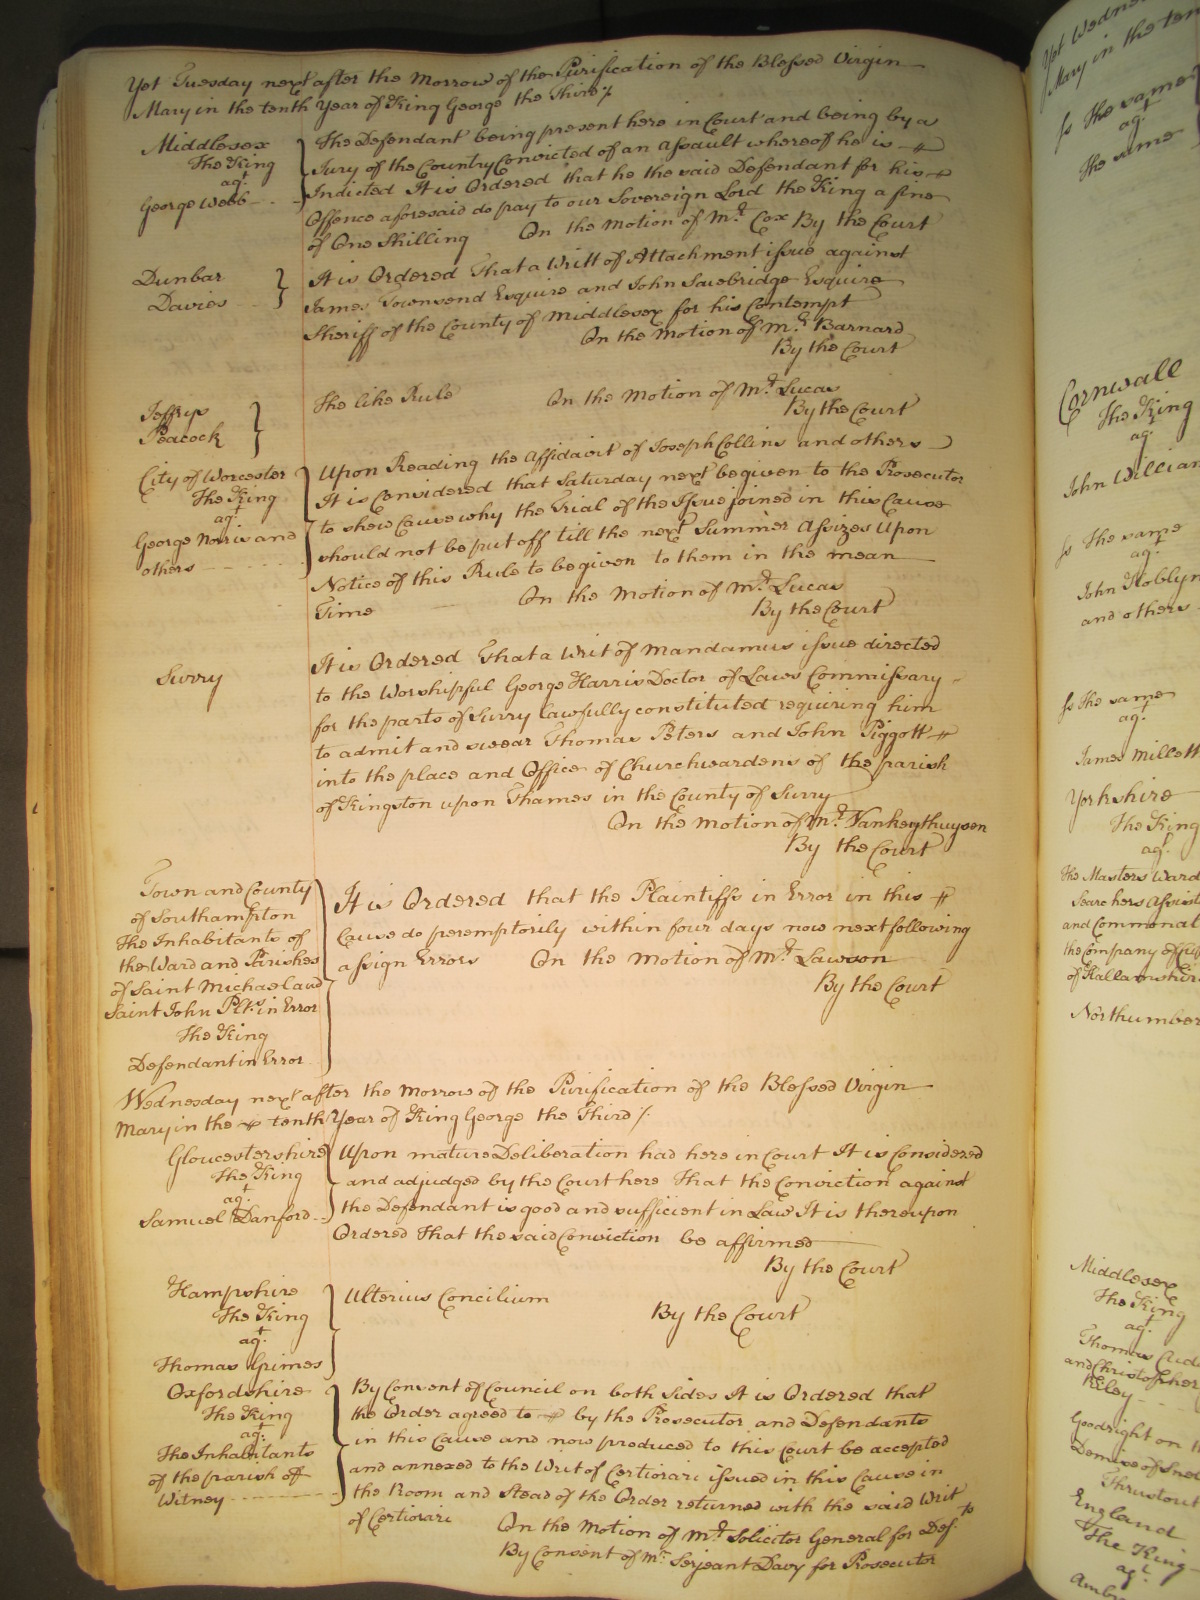 Yet Tuesday next after the Morrow of the Purification of the Blessed Virgin
Mary in the tenth Year of King George the Third
Middlesex
The King
agt.
George Webb
The Defendant being present here in Court and being by a
Jury of the Country Convicted of an Assault whereof he is
Indicted It is Ordered that he the said Defendant for his
Offence aforesaid do pay to our Sovereign Lord the King a fine
of One Shilling On the Motion of Mr. Cox By the Court
Dunbar
Davies
It is Ordered That a Writt of Attachment issue against
James Townsend Esquire and John Sawbridge Esquire
Sheriff of the County of Middlesex for his Contempt
On the Motion of Mr. Barnard
By the Court
Jeffrys
Peacock
The like Rule On the Motion of Mr. Lucas
By the Court
City of Worcester
The King
agt.
George Norris and
others
Upon Reading the Affidavit of Joseph Collins and others
It is Considered that Saturday next be given to the Prosecutor
to shew Cause why the Trial of the Issue joined in this Cause
should not be put off till the next Summer Assizes Upon
Notice of this Rule to be given to them in the mean
Time On the Motion of Mr. Lucas
By the Court
Surry
It is Ordered That a Writ of Mandamus issue directed
to the Worshipful George Harris Doctor of Laws Commissary
for the parts of Surry lawfully constituted requiring him
to admit and swear Thomas Peters and John Piggott
into the place and Office of Churchwardens of the parish
of Kingston upon Thames in the County of Surry
On the Motion of Mr. Vanheythuysen
By the Court
Town and County
of Southampton
The Inhabitants of
the Ward and Parishes
of Saint Michael and
Saint John Plts. in Error
The King
Defendant in Error
It is Ordered that the Plaintiffs in Error in this
Cause do peremptorily within four days now next following
assign Errors On the Motion of Mr. Lawson
By the Court
Wednesday next after the Morrow of the Purification of the Blessed Virgin
Mary in the tenth Year of King George the Third
Gloucestershire
The King
agt.
Samuel Danford
Upon mature Deliberation had here in Court It is Considered
and adjudged by the Court here That the Conviction against
the Defendant is good and sufficient in Law It is thereupon
Ordered That the said Conviction be affirmed
By the Court
Hampshire
The King
agt.
Thomas Grimes
Ulterius Concilium
By the Court
Oxfordshire
The King
agt.
The Inhabitants
of the parish of
Witney
By Consent of Council on both sides It is Ordered that
the Order agreed to by the Prosecutor and Defendants
in this Cause and now produced to this Court be accepted
and annexed to the Writ of Certiorari issued in this Cause in
the Room and Stead of the Order returned with the said Writ
of Certiorari On the Motion of Mr. Solicitor General for Defts.
By Consent of Mr. Serjeant Davy for Prosecutor
Mary in the
Js The same
agt.
The same
Cornwall
The King
agt.
John
Js The same
agt.
John
and others
Js The same
agt.
James Millett
Yorkshire
The King
agt.
The Masters
and
of
Middlesex
The King
agt.
Thomas
and Christopher
Riley
Goodright on
Demise of
Thrustout
England
The King
agt.